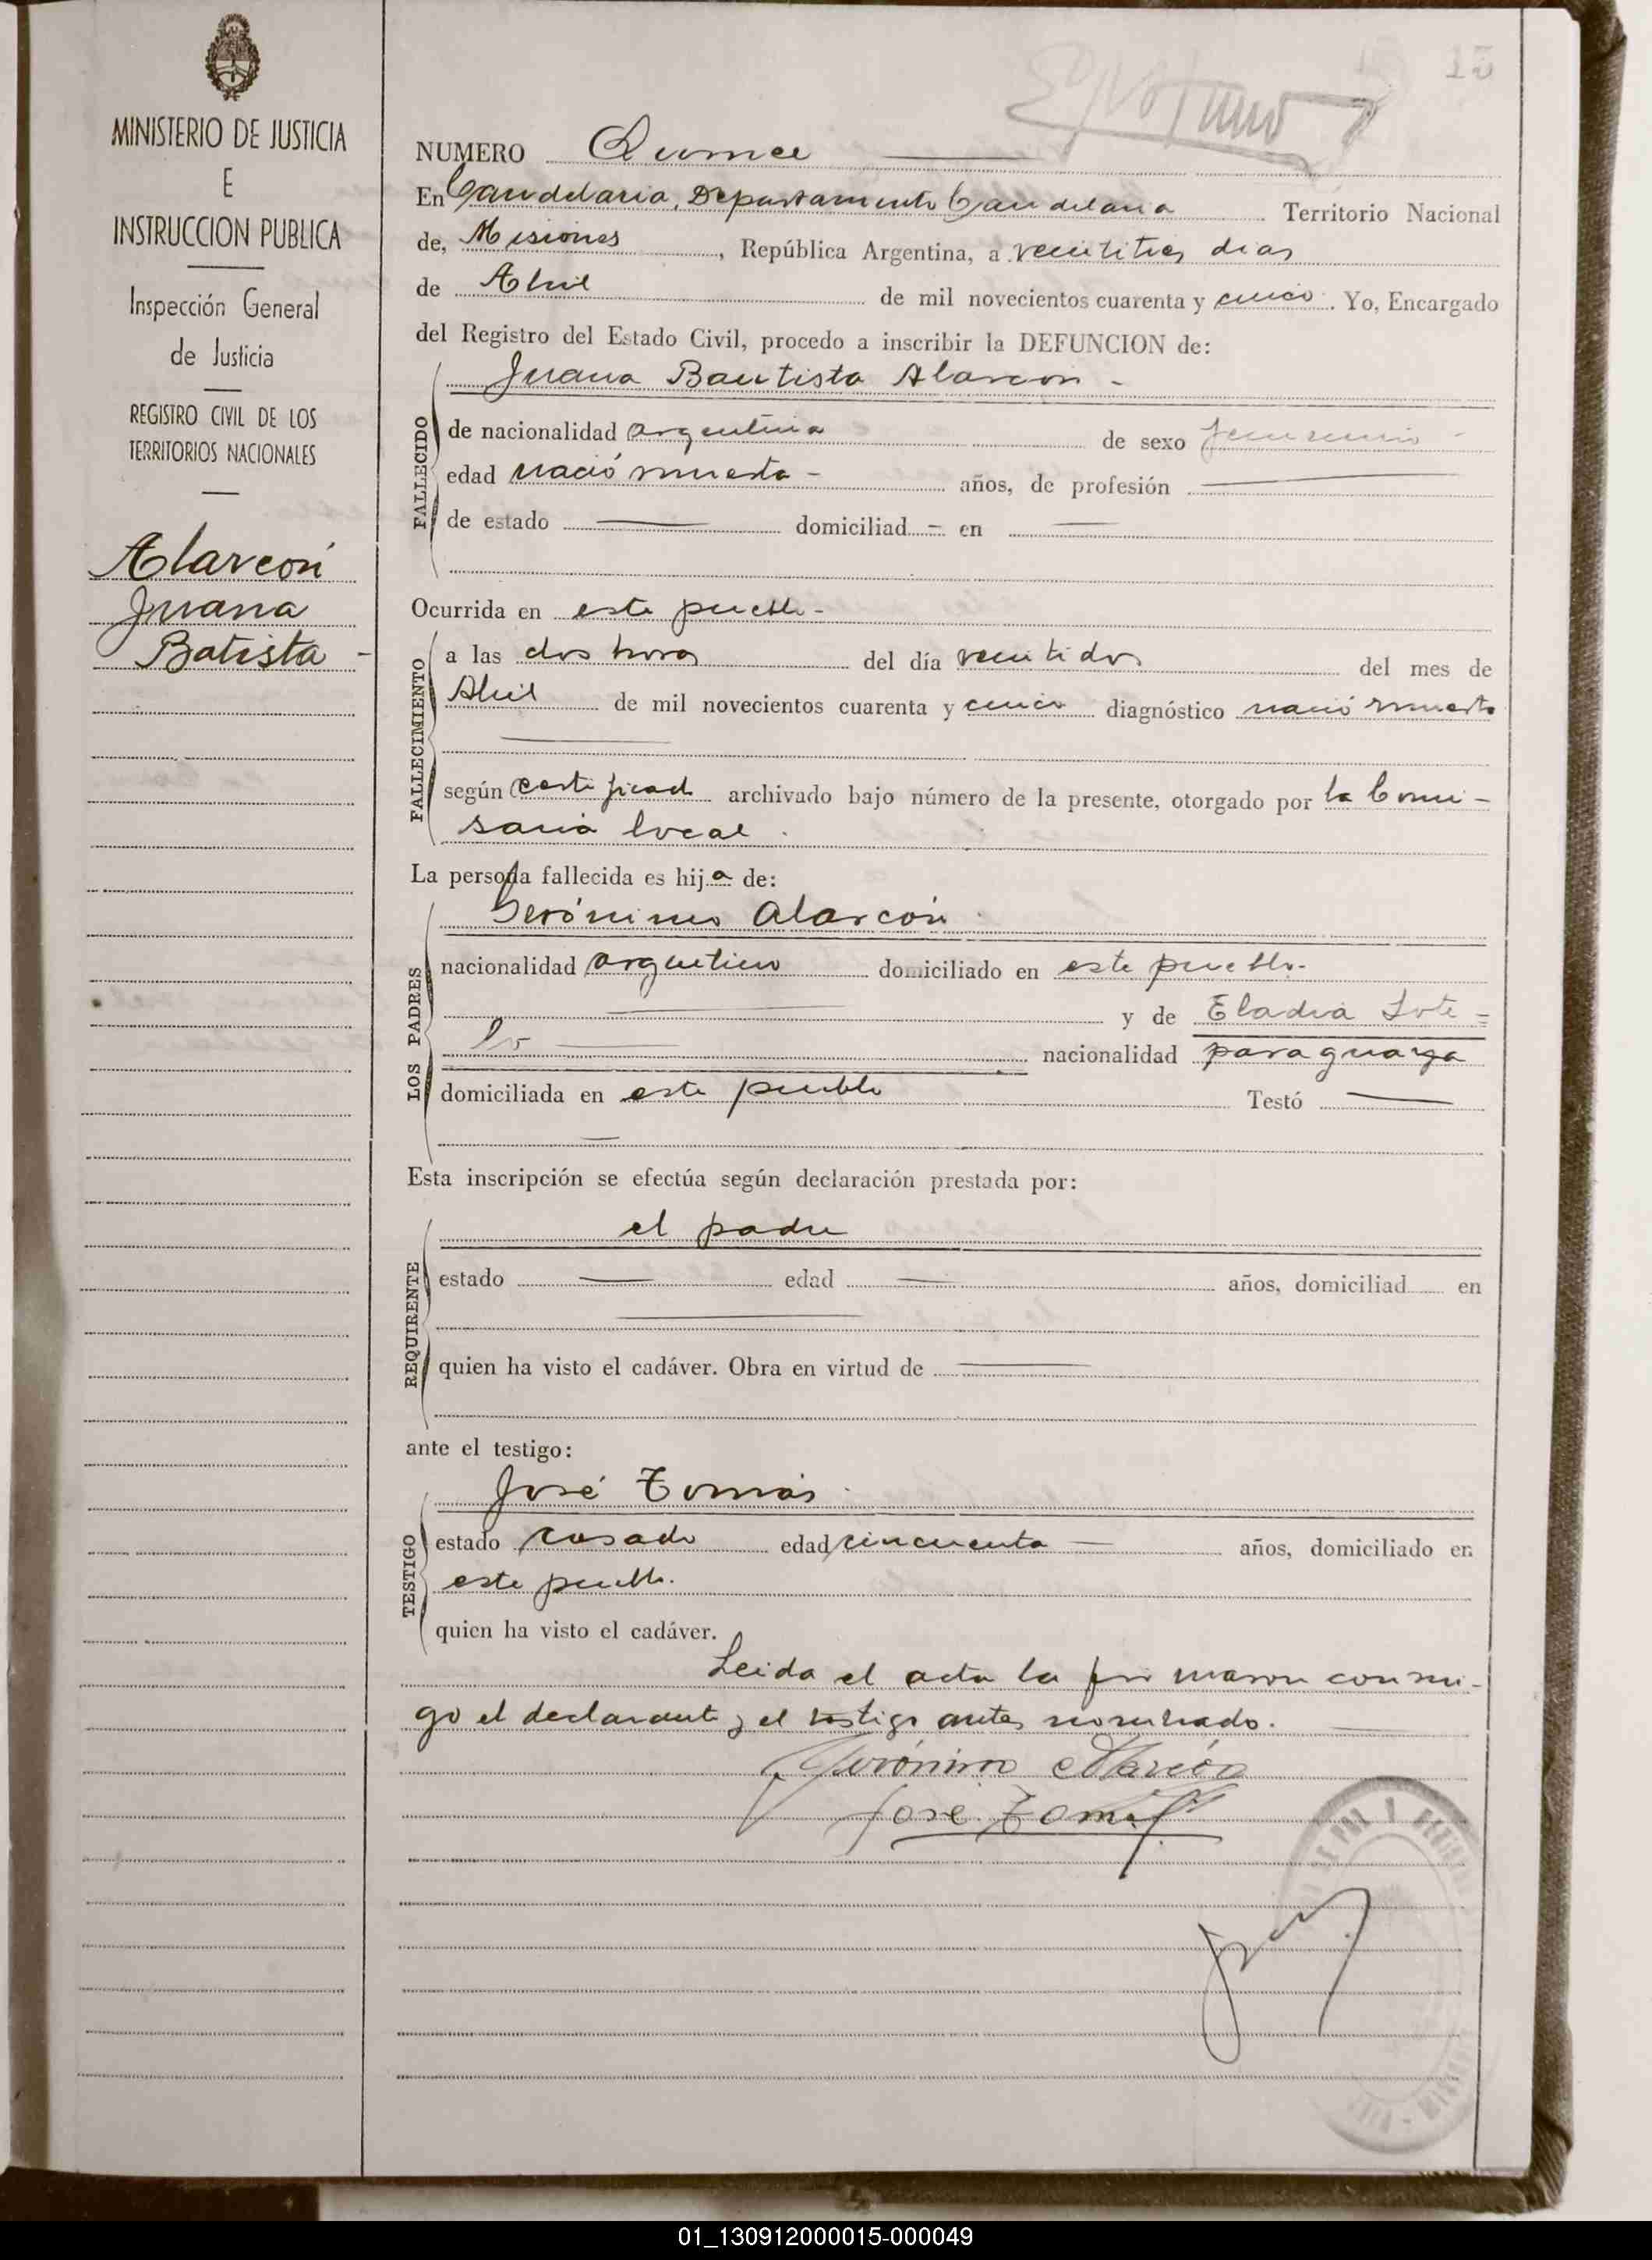 15
MINISTERIO DE JUSTICIA
E
INSTRUCCION PUBLICA
Inspección General
de Justicia
REGISTRO CIVIL DE LOS
TERRITORIOS NACIONALES
Alarcón
Juana
Batista -
NUMERO Quince
En Candelaria, Departamento Candelaria Territorio Nacional
de, Misiones, República Argentina, a veintitres dias
de Abril de mil novecientos cuarenta y cinco. Yo, Encargado
del Registro del Estado Civil, procedo a inscribir la DEFUNCION de:
Juana Bautista Alarcon -
FALLECIDO
de nacionalidad argentina de sexo femenino -
edad nació muerta - años, de profesión
de estado domiciliad - en
Ocurrida en este pueblo -
FALLECIMIENTO
a las dos horas del día veintidos del mes de
Abril de mil novecientos cuarenta y cinco diagnóstico nació muerta
según certificado archivado bajo número de la presente, otorgado por la Comi-
saria local.
La persona fallecida es hija de:
Gerónimo Alarcón.
LOS PADRES
nacionalidad argentino domiciliado en este pueblo.-
y de Eladia Sote=
lo nacionalidad paraguaya
domiciliada en este pueblo Testó
Esta inscripción se efectúa según declaración prestada por:
el padre
REQUIRENTE
estado edad años, domiciliad en
quien ha visto el cadáver. Obra en virtud de
ante el testigo:
José Tomás.
TESTIGO
estado casado edad cincuenta años, domiciliado en
este pueblo.
quien ha visto el cadáver.
Leida el acta la firmaron conmi-
go el declarante y el testigo antes nombrado.
Gerónimo Alarcón
José Tomás
01_130912000015-000049